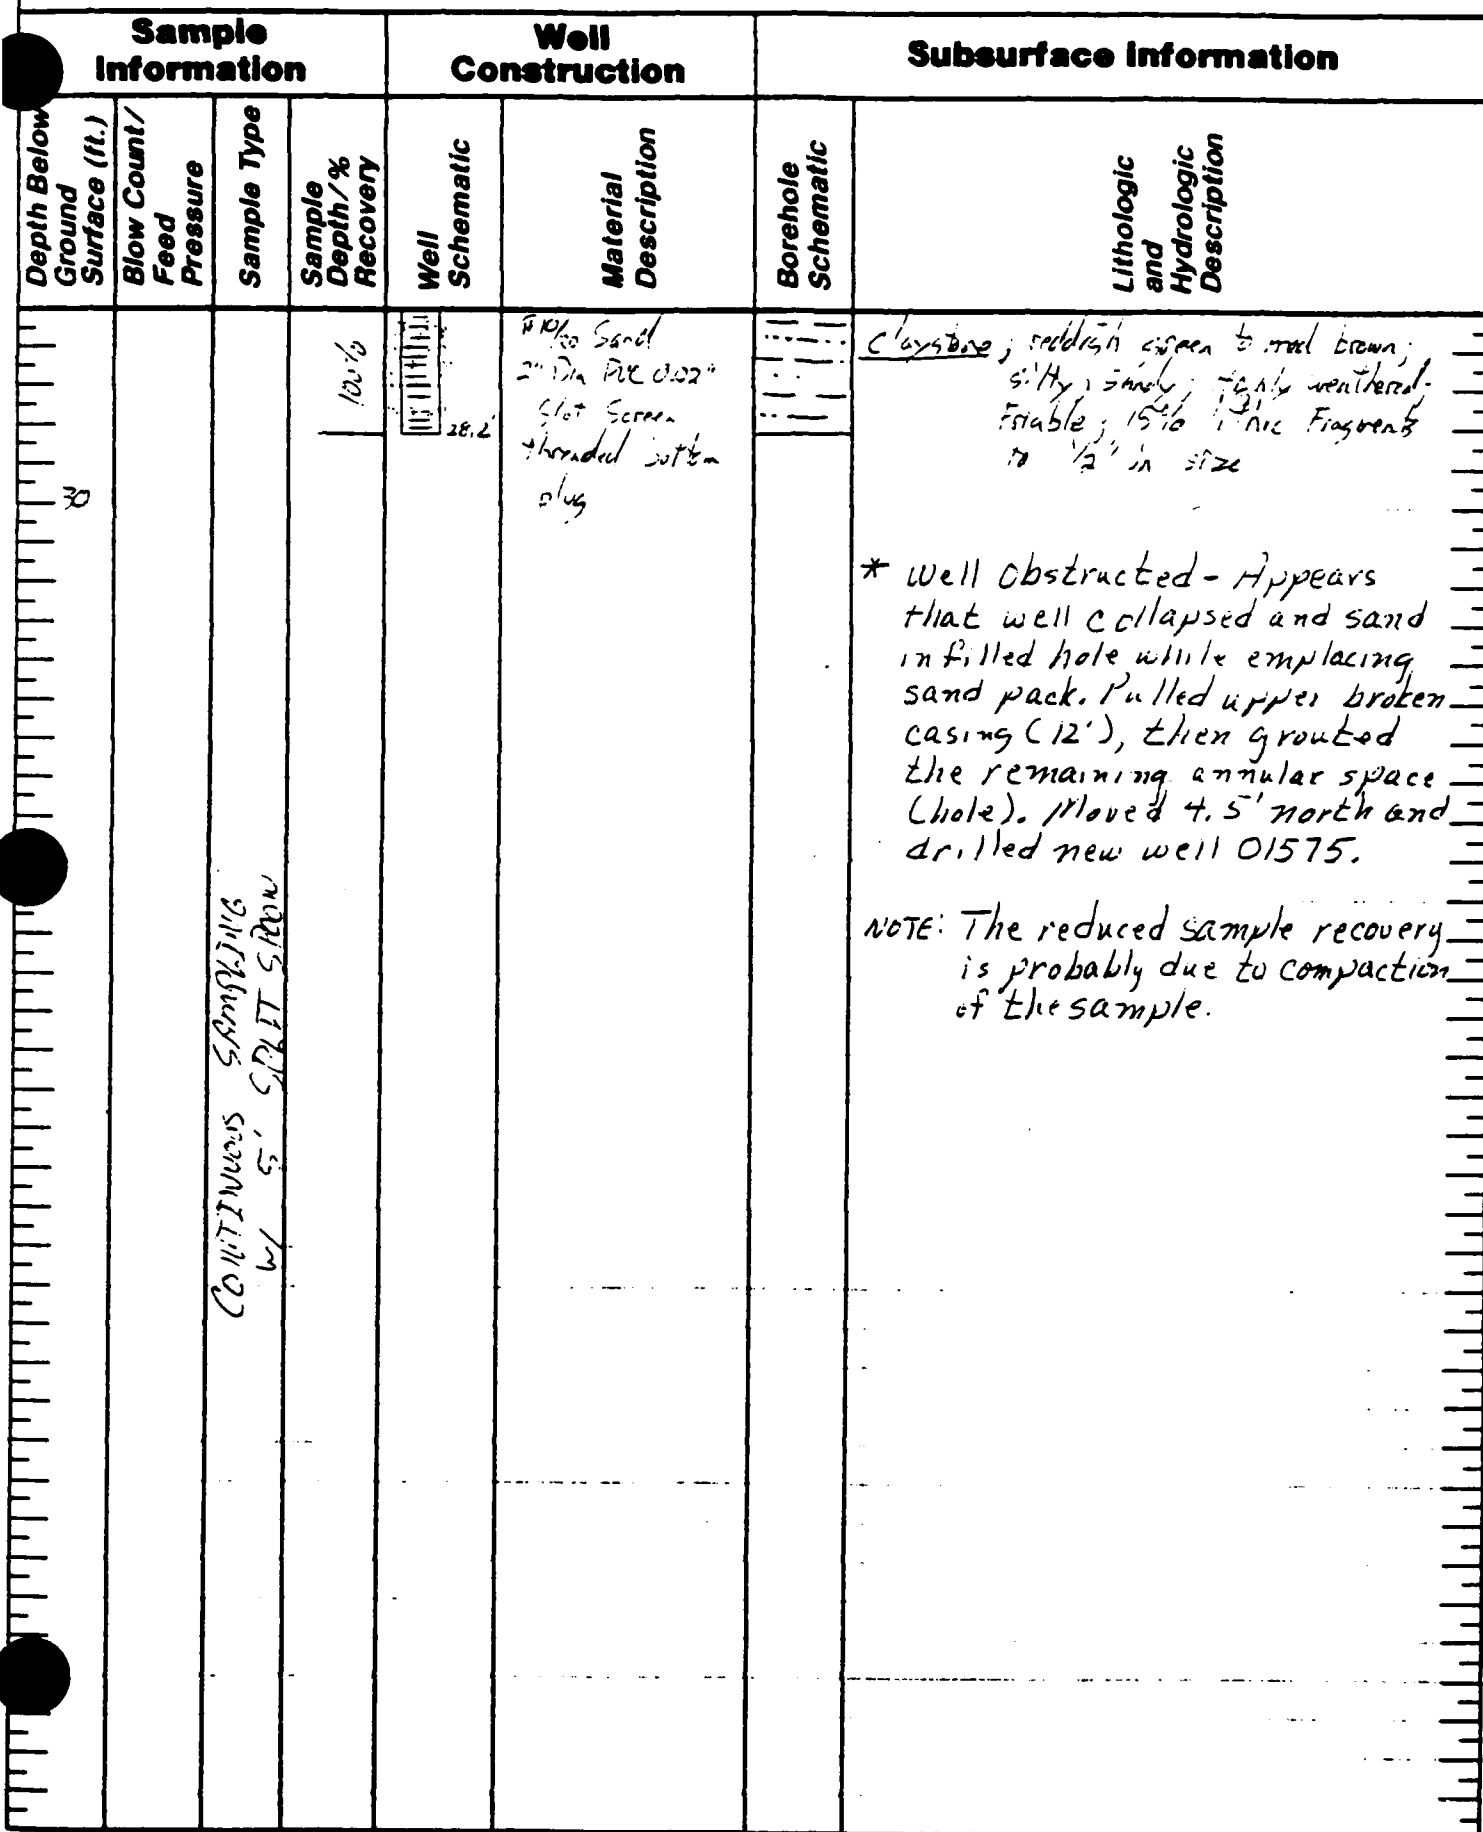 Sample
Information
Well
Construction
Subsurface Information
Depth Below
Ground
Surface (ft.)
Blow Count/
Feed
Pressure
Sample Type
Sample
Depth/%
Recovery
Well
Schematic
Material
Description
Borehole
Schematic
Lithologic
and
Hydrologic
Description
100%
28.2'
30
CONTINUOUS SAMPLING
W/ 5' SPLIT SPOON
#10/20 Sand
2" Dia PVC 0.02"
Slot Screen
threaded bottom
plug
Claystone; reddish green to med brown;
silty; sandy; weathered-
Friable; 15% lithic Fragments
to 1/2" in size
* Well Obstructed - Appears
that well collapsed and sand
infilled hole while emplacing
sand pack. Pulled upper broken
casing (12'), then grouted
the remaining annular space
(hole). Moved 4.5' north and
drilled new well 01575.
NOTE: The reduced sample recovery
is probably due to compaction
of the sample.